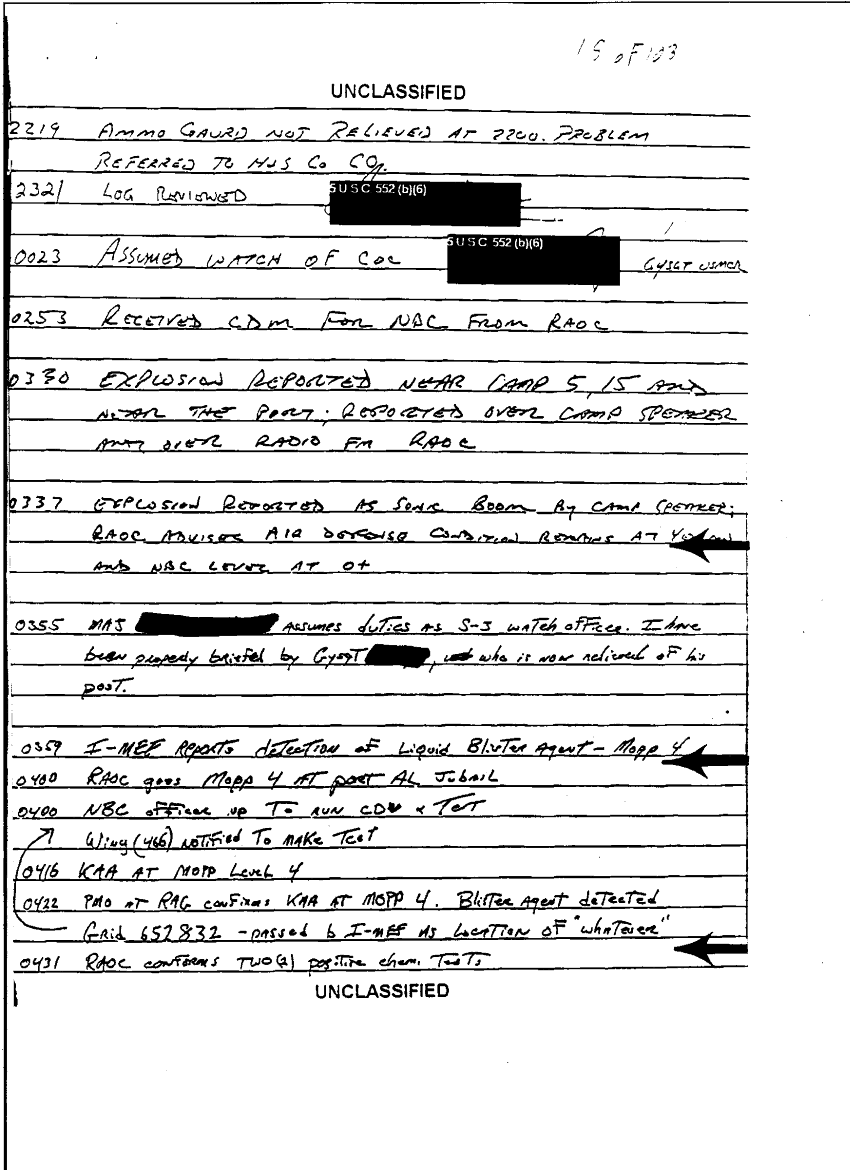 15 OF 103
UNCLASSIFIED
2219 AMMO GAURD NOT RELIEVED AT 2200. PROBLEM
REFERRED TO H&S CO CO.
2321 LOG REVIEWED 5 U S C 552 (b)(6)
0023 ASSUMED WATCH OF COC 5 U S C 552 (b)(6) GYSGT USMCR
0253 RECEIVED CDM FOR NBC FROM RAOC
0330 EXPLOSION REPORTED NEAR CAMP 5, 15 AND
NEAR THE PORT; REPORTED OVER CAMP SPEAKER
AND OVER RADIO FM RAOC
0337 EXPLOSION REPORTED AS SONIC BOOM BY CAMP SPEAKER;
RAOC ADVISES AIR DEFENSE CONDITION REMAINS AT
AND NBC LEVEL AT 0+
0355 MAJ ASSUMES duties AS S-3 WATCH officer. I have
been properly briefed by GySgT , who is now relieved of his
post.
0359 I-MEF Reports detection of Liquid Blister Agent - Mopp 4
0400 RAOC goes Mopp 4 AT port AL Jubail
0400 NBC officer up To RUN & TesT
Wing (466) NOTiFied To MAKe TesT
0416 KAA AT MOPP Level 4
0422 PMO AT RAG confirms KAA AT MOPP 4. Blister Agent detected
Grid 652832 - passed by I-MEF AS Location OF "whatever"
0431 RAOC conforms TWO(2) positive chem. TesTs
UNCLASSIFIED